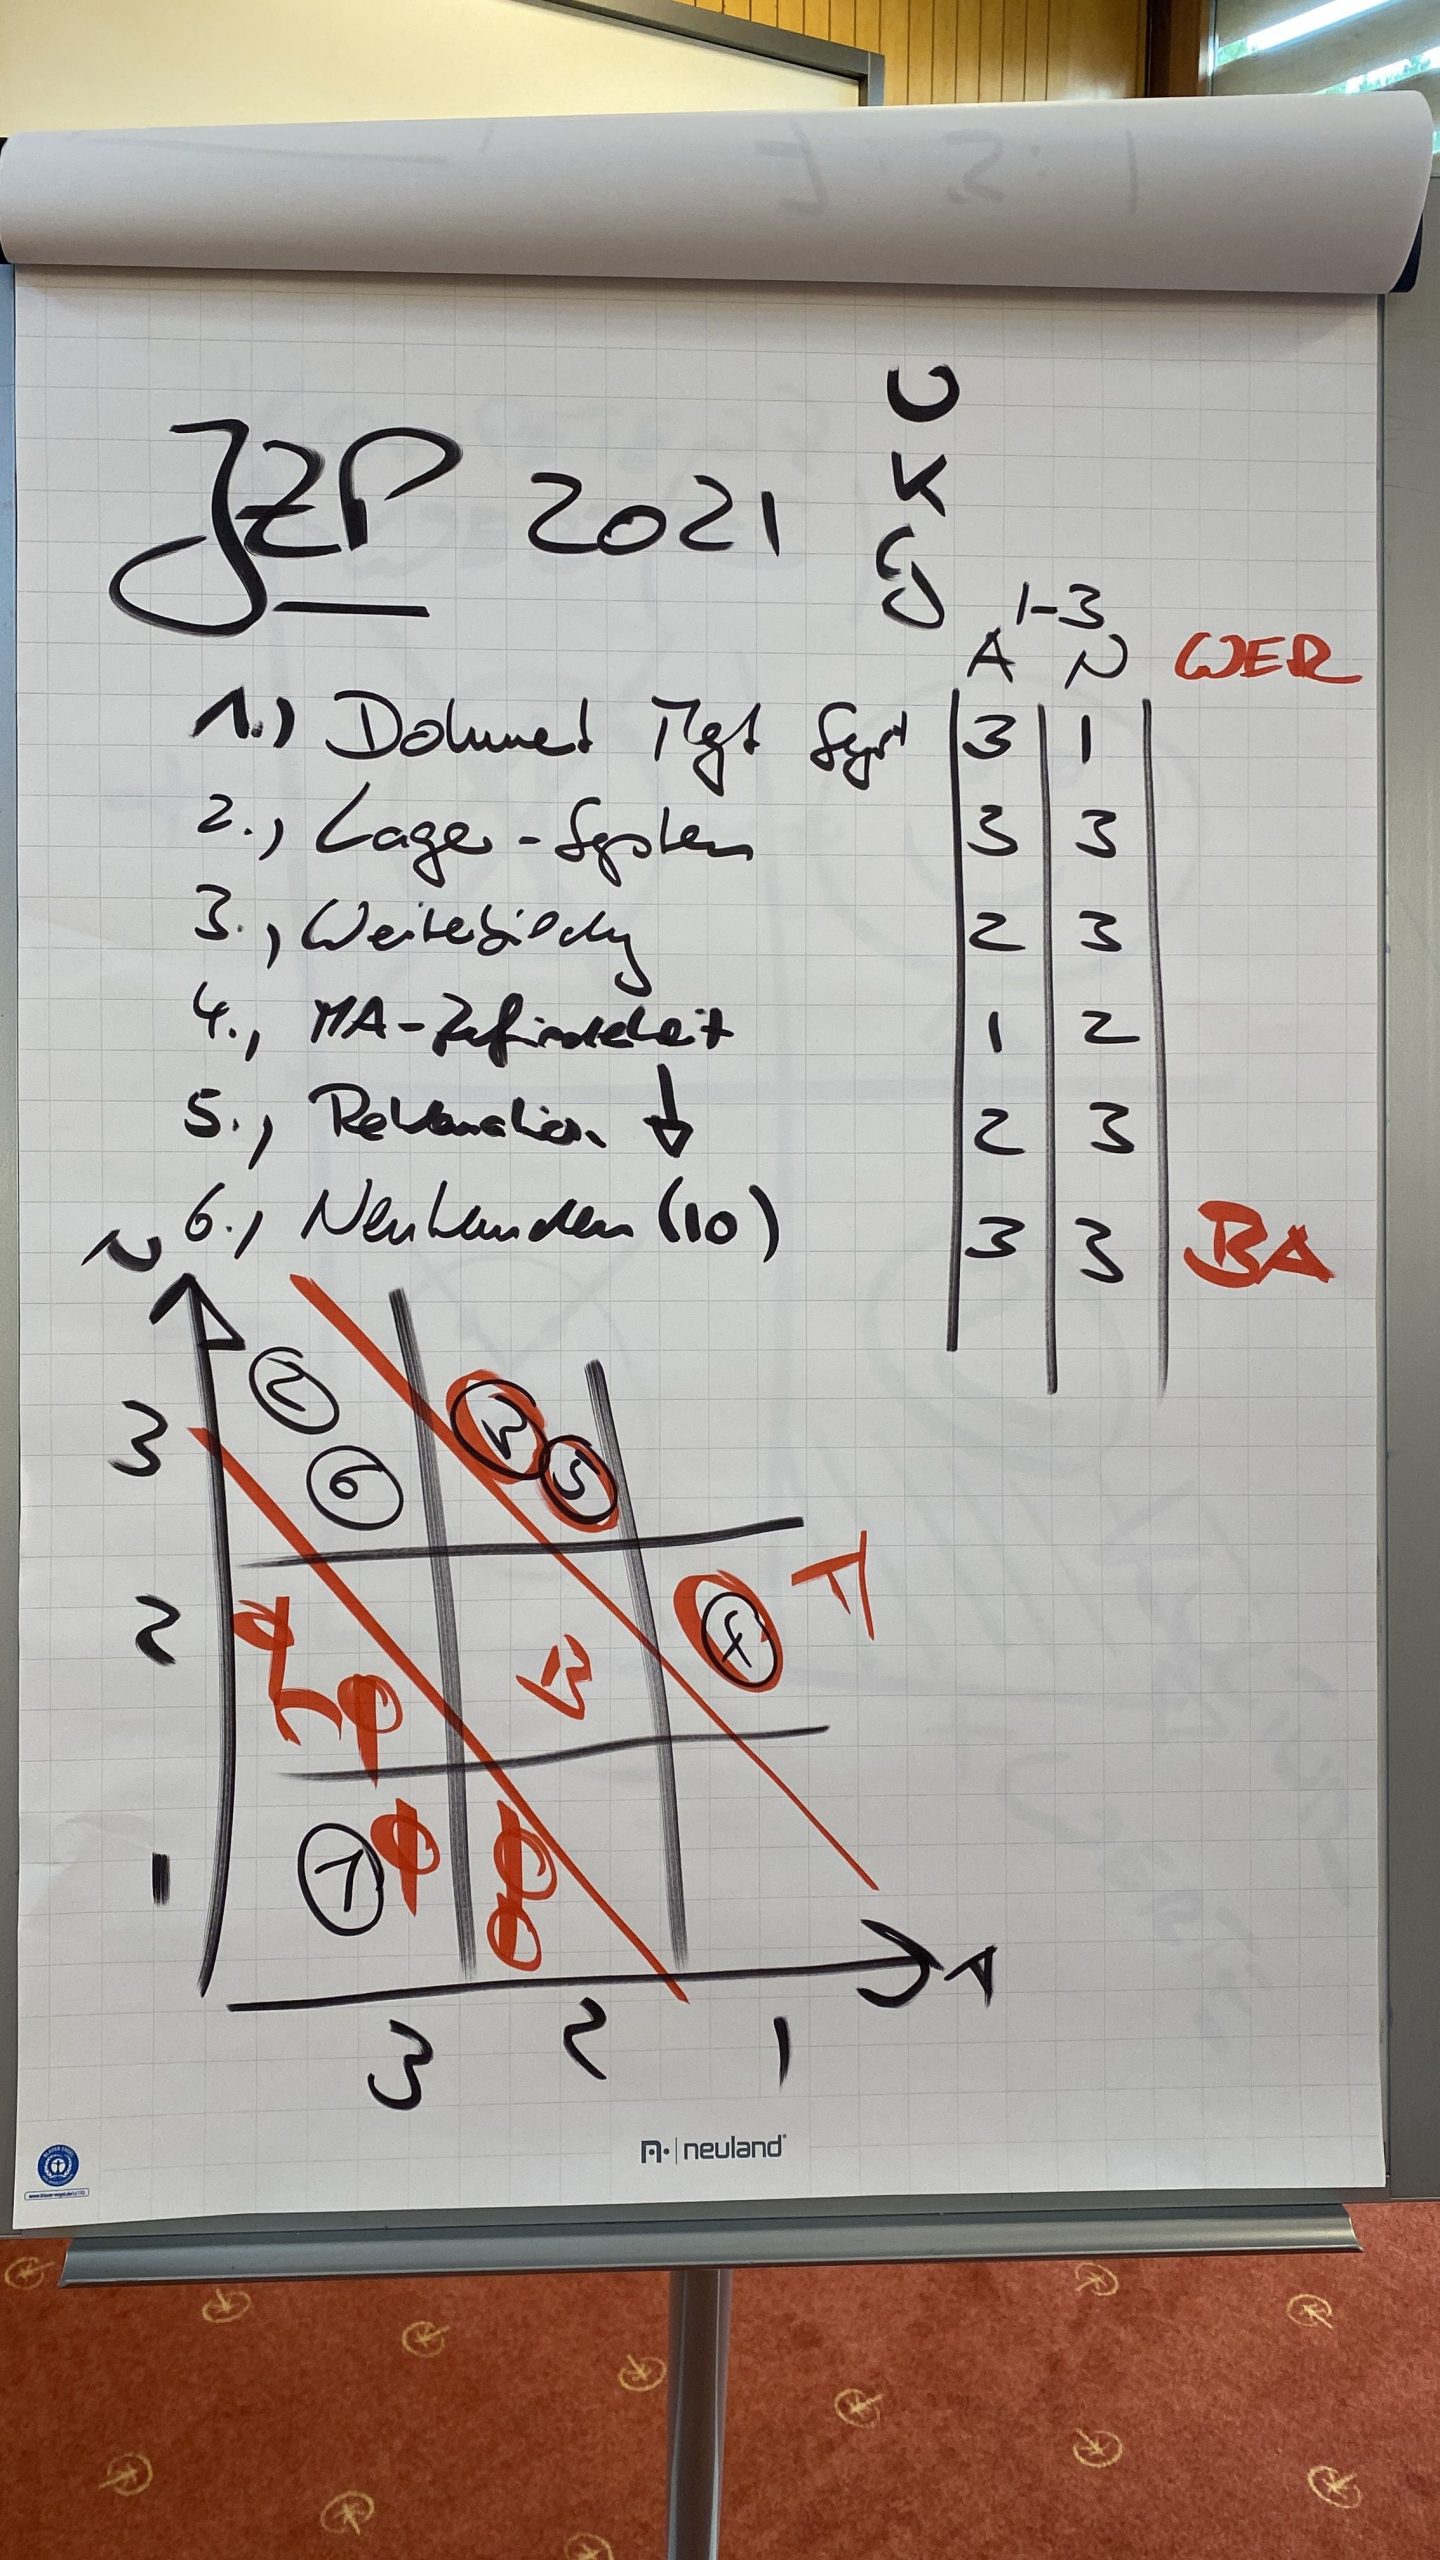 U
K
JZP 2021
1-3
A N WER
1.) Dokument Mgt Syst 3 1
2., Lager-System 3 3
3., Weiterbildung 2 3
4., MA-Zufriedenheit 1 2
5., Reklamation ↓ 2 3
6., Neukunden (10) 3 3 BA
N
3 2 6 3 5
2 4
1 1
A
3 2 1
neuland